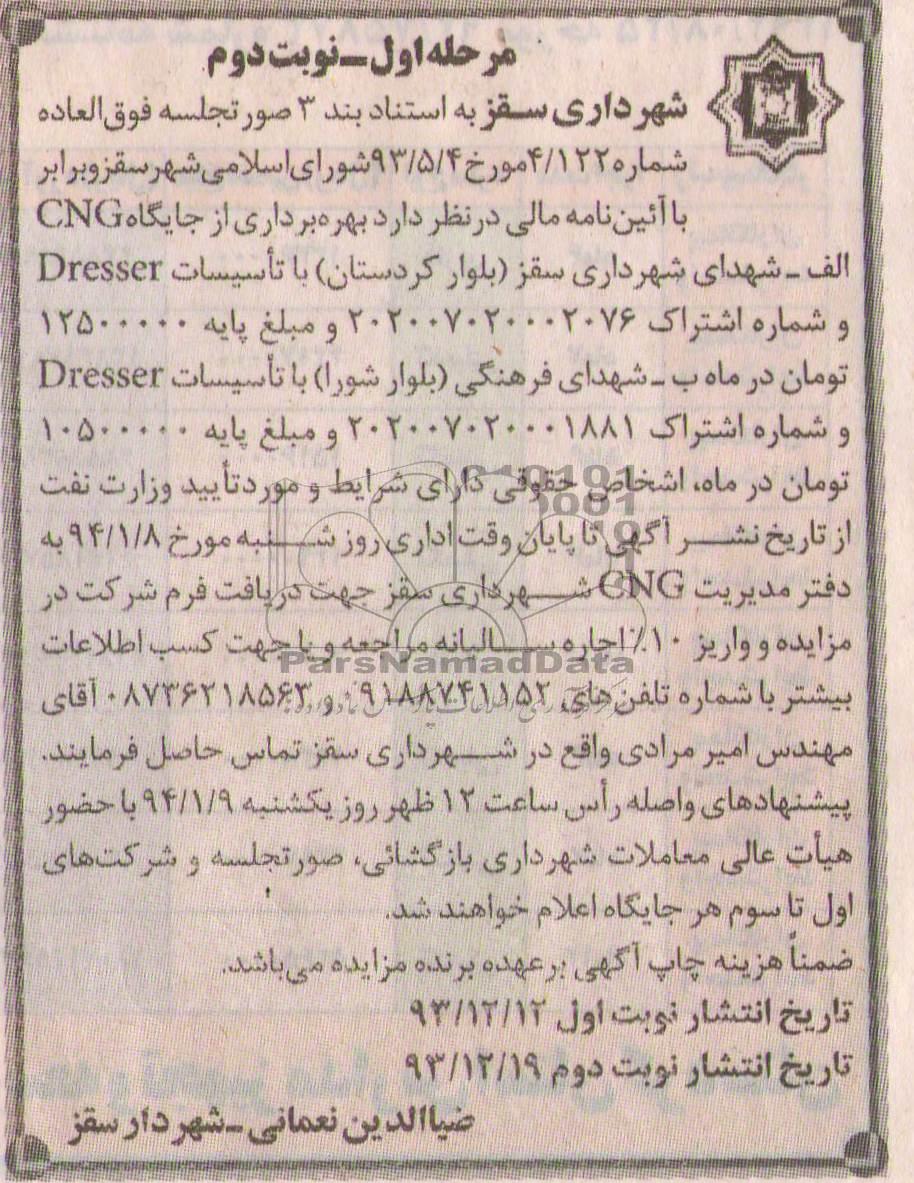 مرحله اول ـ نوبت دوم
شهرداری سقز به استناد بند ۳ صورتجلسه فوق‌العاده
شماره ۴/۱۲۲ مورخ ۹۳/۵/۴ شورای اسلامی شهر سقز و برابر
با آئین‌نامه مالی در نظر دارد بهره‌برداری از جایگاه CNG
الف ـ شهدای شهرداری سقز (بلوار کردستان) با تأسیسات Dresser
و شماره اشتراک ۲۰۲۰۰۷۰۲۰۰۰۲۰۷۶ و مبلغ پایه ۱۲۵۰۰۰۰۰
تومان در ماه ب ـ شهدای فرهنگی (بلوار شورا) با تأسیسات Dresser
و شماره اشتراک ۲۰۲۰۰۷۰۲۰۰۰۱۸۸۱ و مبلغ پایه ۱۰۵۰۰۰۰۰
تومان در ماه، اشخاص حقوقی دارای شرایط و مورد تأیید وزارت نفت
از تاریخ نشر آگهی تا پایان وقت اداری روز شنبه مورخ ۹۴/۱/۸ به
دفتر مدیریت CNG شهرداری سقز جهت دریافت فرم شرکت در
مزایده و واریز ۱۰٪ اجاره سالیانه مراجعه و یا جهت کسب اطلاعات
بیشتر با شماره تلفن‌های ۰۹۱۸۸۷۴۱۱۵۲ و ۰۸۷۳۶۲۱۸۵۶۳ آقای
مهندس امیر مرادی واقع در شهرداری سقز تماس حاصل فرمایند.
پیشنهادهای واصله رأس ساعت ۱۲ ظهر روز یکشنبه ۹۴/۱/۹ با حضور
هیأت عالی معاملات شهرداری بازگشائی، صورتجلسه و شرکت‌های
اول تا سوم هر جایگاه اعلام خواهند شد.
ضمناً هزینه چاپ آگهی برعهده برنده مزایده می‌باشد.
تاریخ انتشار نوبت اول ۹۳/۱۲/۱۲
تاریخ انتشار نوبت دوم ۹۳/۱۲/۱۹
ضیاالدین نعمانی ـ شهردار سقز
ParsNamadData